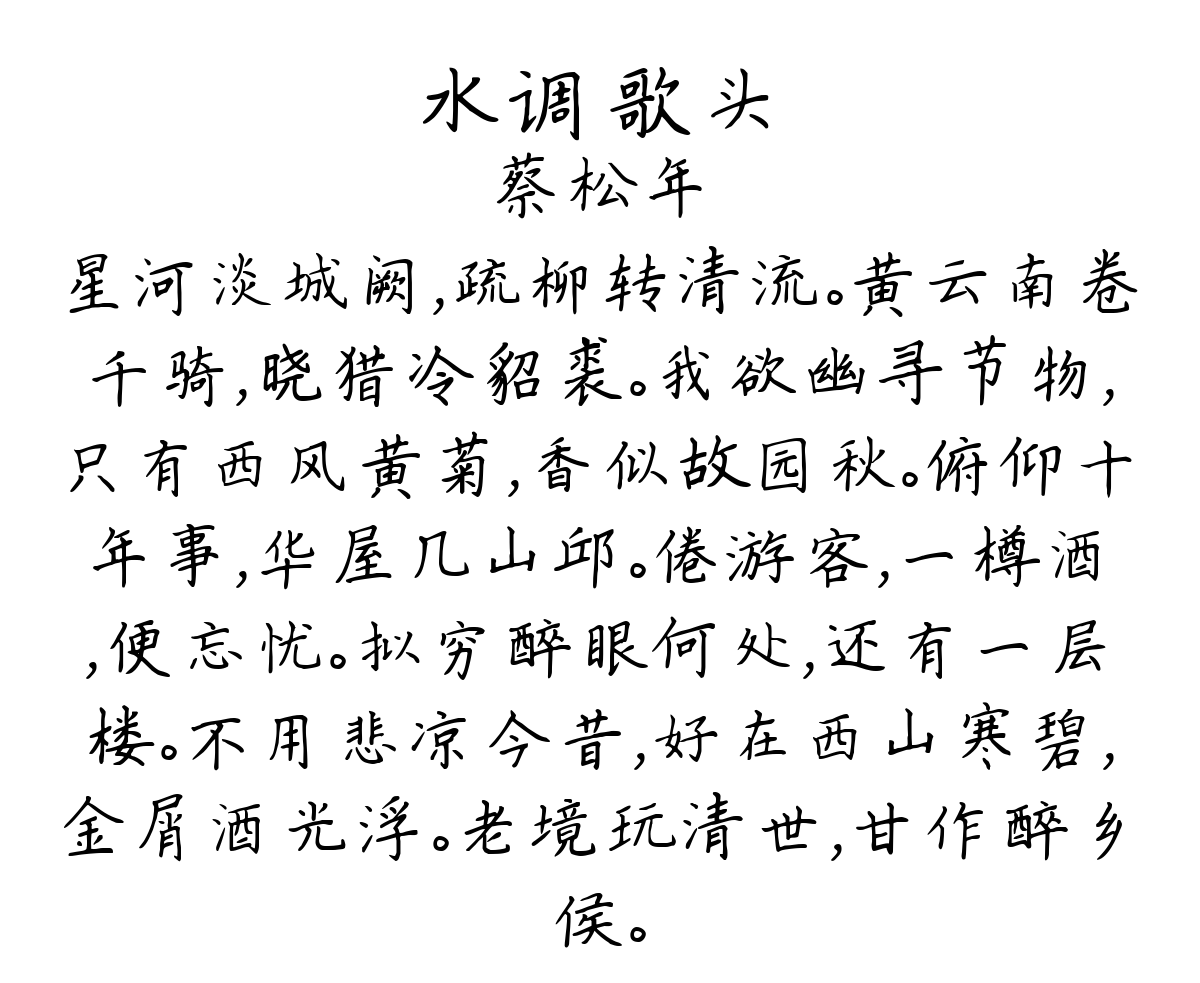 水调歌头
蔡松年
星河淡城阙,疏柳转清流。黄云南卷
千骑,晓猎冷貂裘。我欲幽寻节物,
只有西风黄菊,香似故园秋。俯仰十
年事,华屋几山邱。倦游客,一樽酒
,便忘忧。拟穷醉眼何处,还有一层
楼。不用悲凉今昔,好在西山寒碧,
金屑酒光浮。老境玩清世,甘作醉乡
侯。